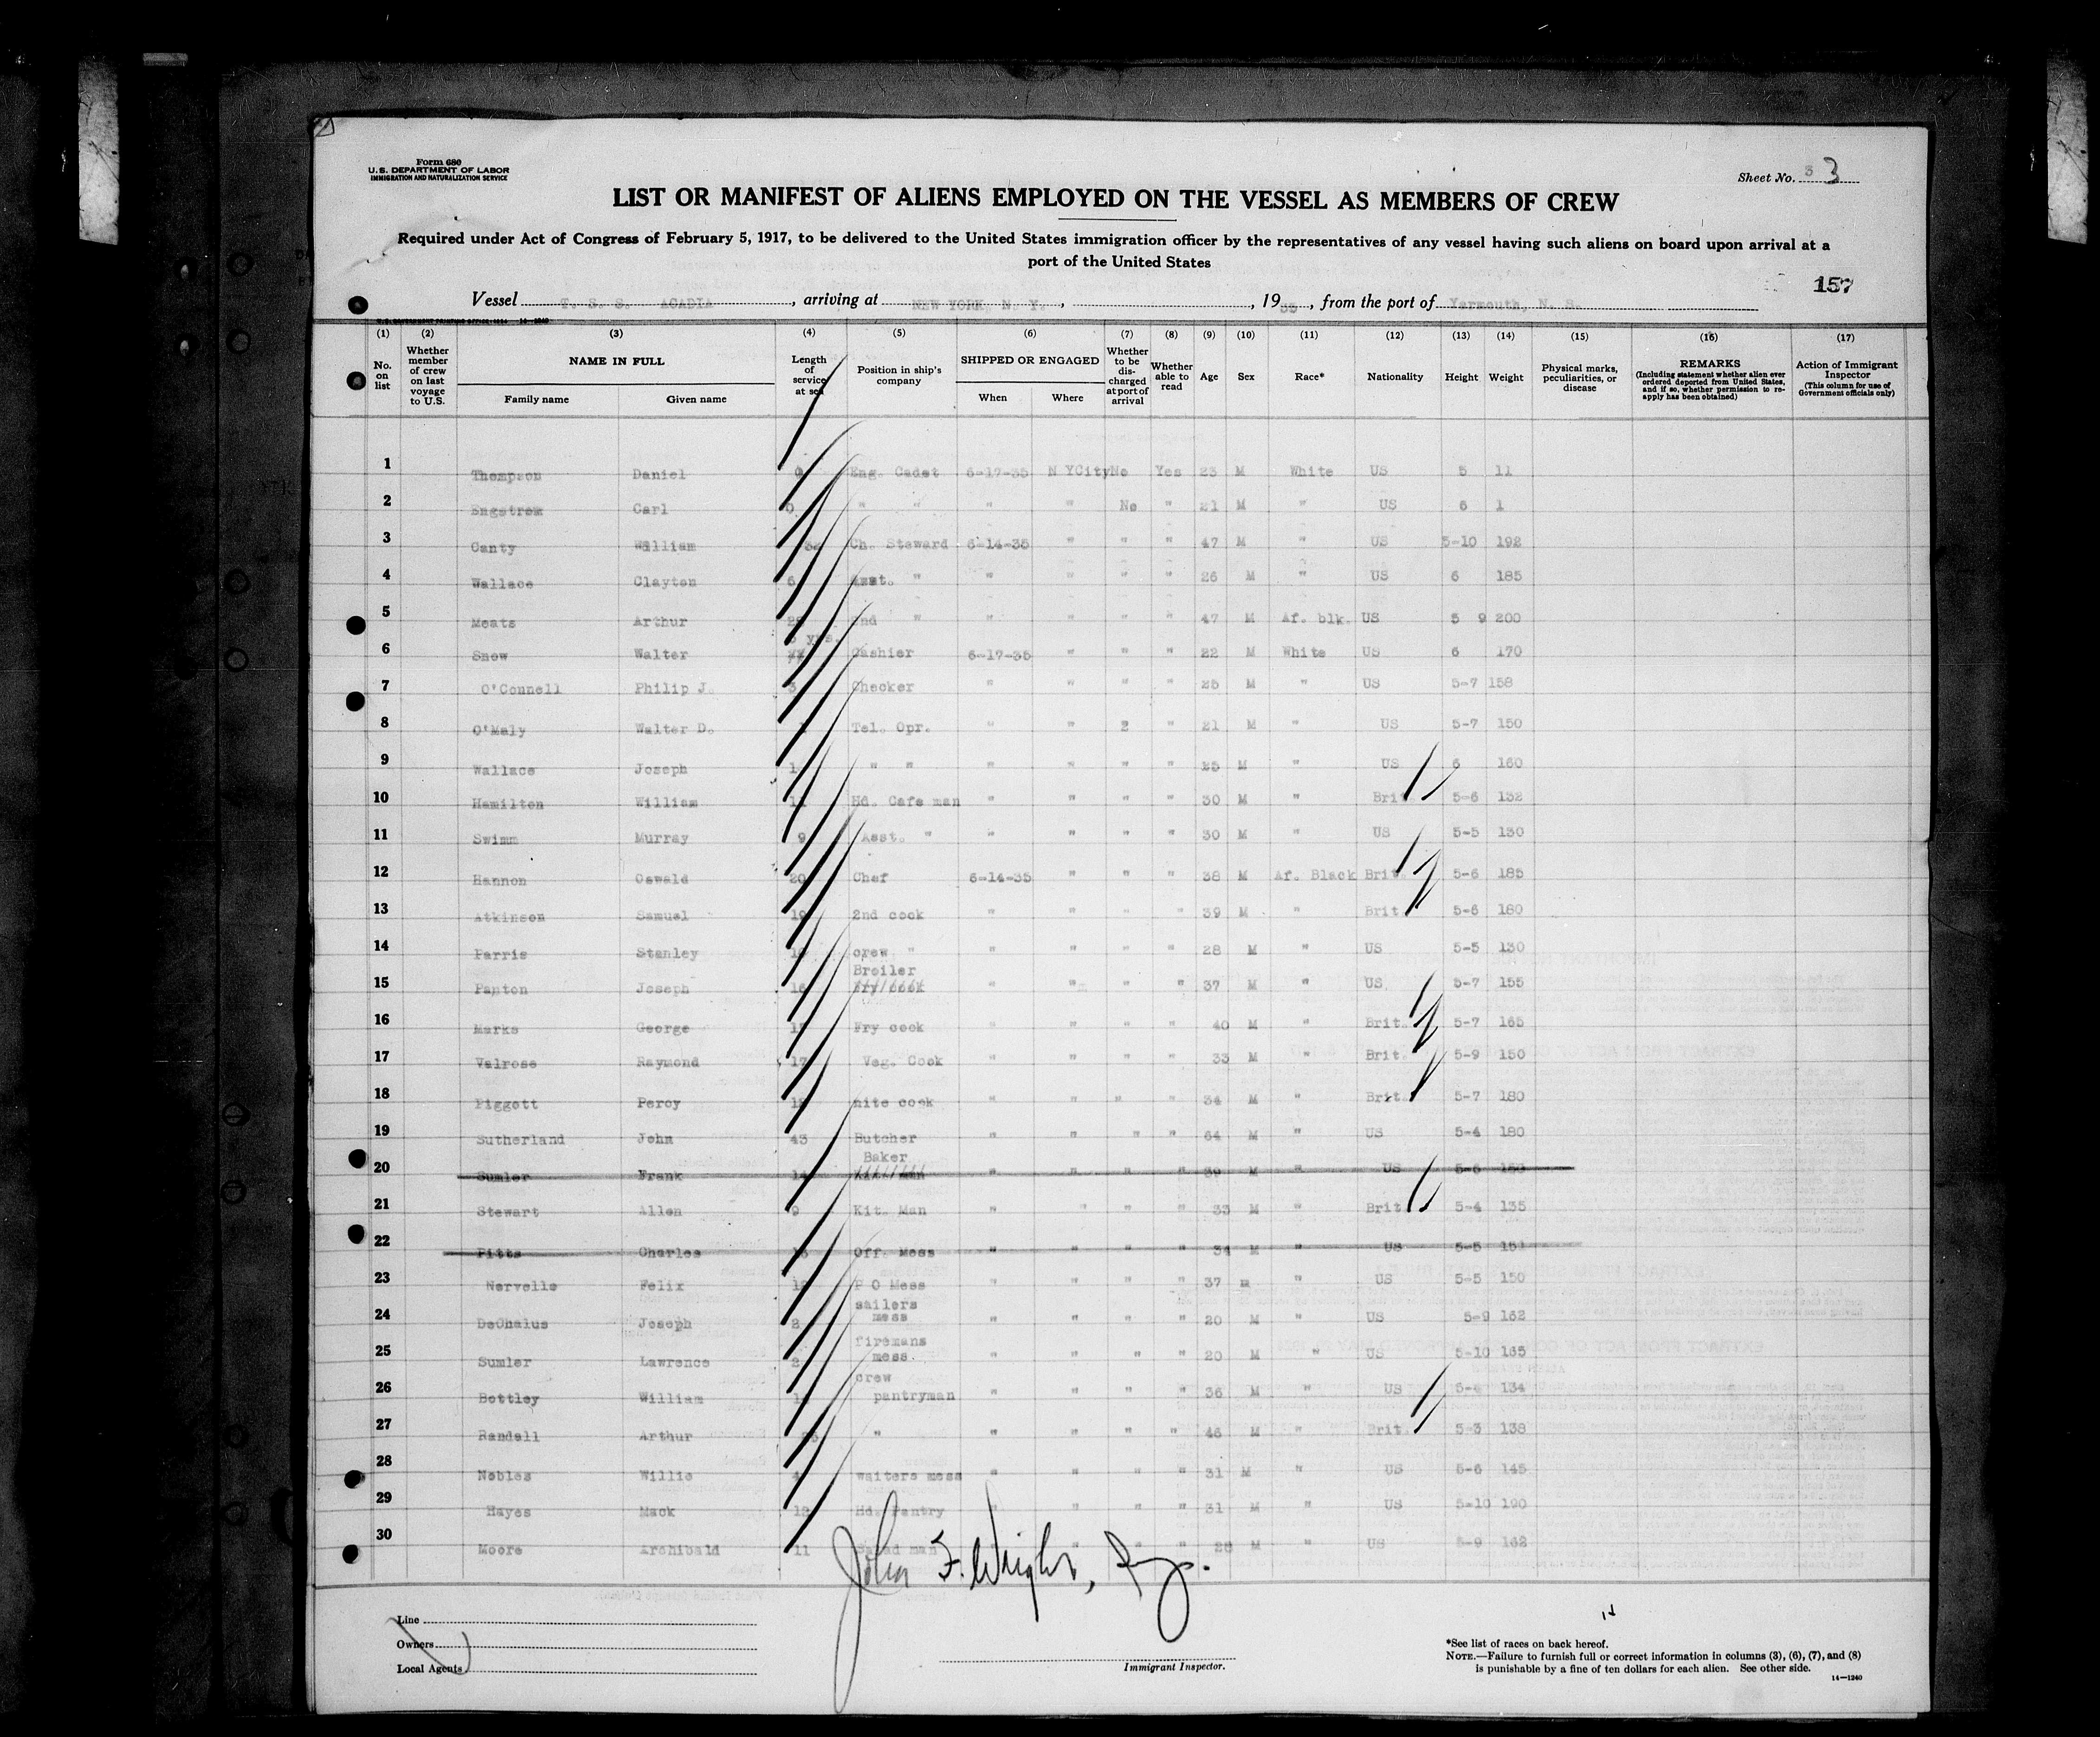 Form 680
U.S. DEPARTMENT OF LABOR
IMMIGRATION AND NATURALIZATION SERVICE
Sheet No. 3 3
LIST OR MANIFEST OF ALIENS EMPLOYED ON THE VESSEL AS MEMBERS OF CREW
Required under Act of Congress of February 5, 1917, to be delivered to the United States immigration officer by the representatives of any vessel having such aliens on board upon arrival at a
port of the United States
157
Vessel T. S. S. ACADIA, arriving at NEW YORK, N. Y., , 1935, from the port of Yarmouth, N. S.
(1) (2) (3) (4) (5) (6) (7) (8) (9) (10) (11) (12) (13) (14) (15) (16) (17)
No. on list Whether member of crew on last voyage to U.S. NAME IN FULL Family name Given name Length of service at sea Position in ship's company SHIPPED OR ENGAGED When Where Whether to be discharged at port of arrival Whether able to read Age Sex Race* Nationality Height Weight Physical marks, peculiarities, or disease REMARKS (Including statement whether alien ever ordered deported from United States, and if so, whether permission to reapply has been obtained) Action of Immigrant Inspector (This column for use of Government officials only)
1 Thompson Daniel 0 Eng. Cadet 6-17-35 N YCity No Yes 23 M White US 5 11
2 Engstrom Carl 0 " " " " No " 21 M " US 6 1
3 Canty William 32 Ch. Steward 6-14-35 " " " 47 M " US 5-10 192
4 Wallace Clayton 6 Asst. " " " " " 26 M " US 6 185
5 Meats Arthur 2nd " " " " " 47 M Af. blk. US 5 9 200
6 Snow Walter yrs. Cashier 6-17-35 " " " 22 M White US 6 170
7 O'Connell Philip J. 3 Checker " " " " 25 M " US 5-7 158
8 O'Maly Walter D. 1 Tel. Opr. " " 2 " 21 M " US 5-7 150
9 Wallace Joseph 1 " " " " " " 25 M " US 6 160
10 Hamilton William Hd. Cafe man " " " " 30 M " Brit. 5-6 132
11 Swimm Murray 9 Asst. " " " " " 30 M " US 5-5 130
12 Hannon Oswald 20 Chef 6-14-35 " " " 38 M Af. Black Brit. 5-6 185
13 Atkinson Samuel 19 2nd cook " " " " 39 M " Brit. 5-6 180
14 Parris Stanley crew " " " " " 28 M " US 5-5 130
15 Panton Joseph 16 Broiler Fry cook " " " " 37 M " US 5-7 155
16 Marks George Fry cook " " " " 40 M " Brit. 5-7 165
17 Valrose Raymond 17 Veg. Cook " " " " 33 M " Brit. 5-9 150
18 Piggott Percy nite cook " " " " 34 M " Brit. 5-7 180
19 Sutherland John 43 Butcher " " " " 64 M " US 5-4 180
20 Sumler Frank Baker Kit. Man " " " " 39 M " US 5-6
21 Stewart Allen 9 Kit. Man " " " " 33 M " Brit. 5-4 135
22 Pitts Charles Off. Mess " " " " 34 M " US 5-5
23 Nervelle Felix P O Mess " " " " 37 m " US 5-5 150
24 DeChalus Joseph 2 sailers mess " " " " 20 M " US 5-9 162
25 Sumler Lawrence 2 firemans mess " " " " 20 M " US 5-10 165
26 Bottley William crew pantryman " " " " 36 M " US 134
27 Randell Arthur " " " " " 46 M " Brit. 5-3 138
28 Nobles Willie 4 waiters mess " " " " 31 M " US 5-6 145
29 Hayes Mack 12 Hd. Pantry " " " " 31 M " US 5-10 190
30 Moore Archibald 11 Salad man " " " " 28 M " US 5-9 162
John F. Wright,
Line
Owners
Local Agents
Immigrant Inspector.
*See list of races on back hereof.
NOTE.—Failure to furnish full or correct information in columns (3), (6), (7), and (8)
is punishable by a fine of ten dollars for each alien. See other side.
14—1240